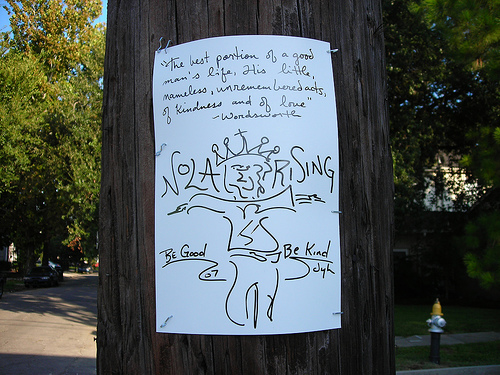 "the best portion of a good
man's life, His little,
nameless, unremembered acts,
of Kindness and of love"
-Wordsworth
NOLA RISING
BE Good Be Kind
07 dyh